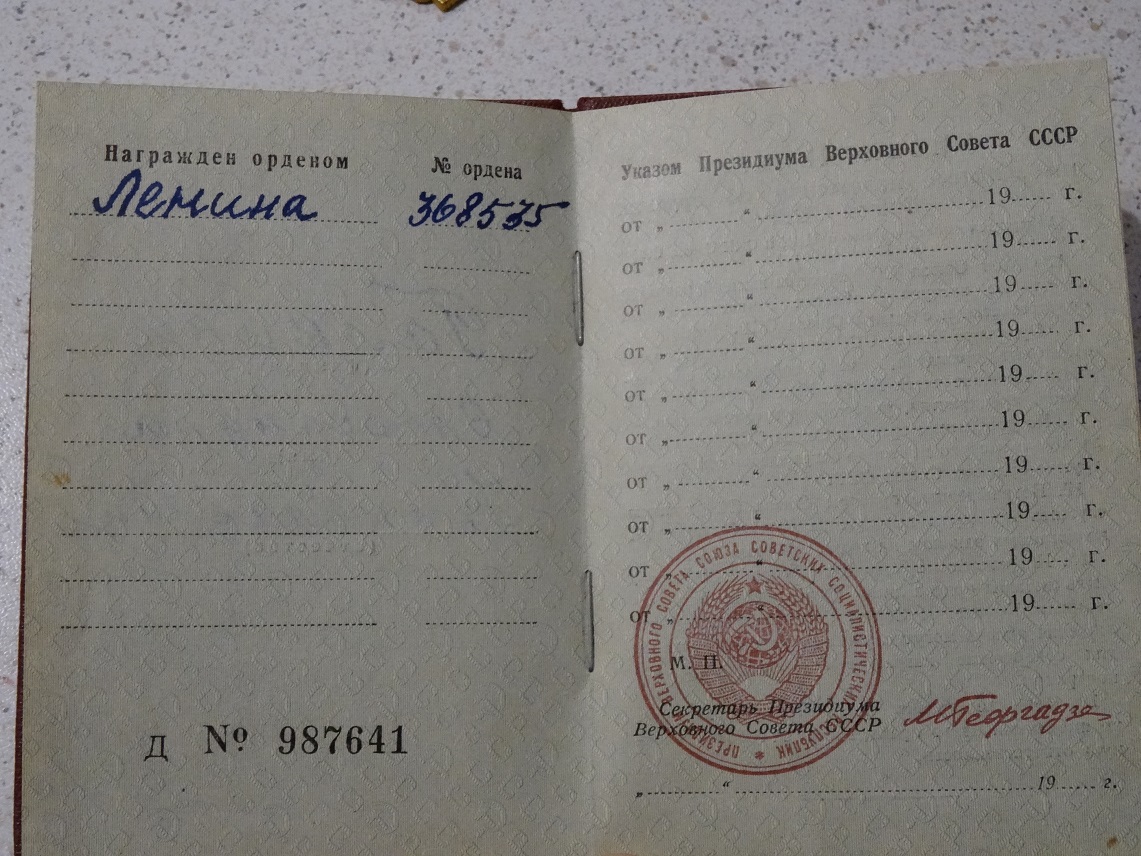 Награжден орденом № ордена
Ленина 368535
Д № 987641
Указом Президиума Верховного Совета СССР
от „ “ 19 г.
от „ “ 19 г.
от „ “ 19 г.
от „ “ 19 г.
от „ “ 19 г.
от „ “ 19 г.
от „ “ 19 г.
от „ “ 19 г.
от „ “ 19 г.
от „ “ 19 г.
ПРЕЗИДИУМ ВЕРХОВНОГО СОВЕТА СОЮЗА СОВЕТСКИХ СОЦИАЛИСТИЧЕСКИХ РЕСПУБЛИК
М. П.
Секретарь Президиума
Верховного Совета СССР МГеоргадзе
„ “ 19 г.